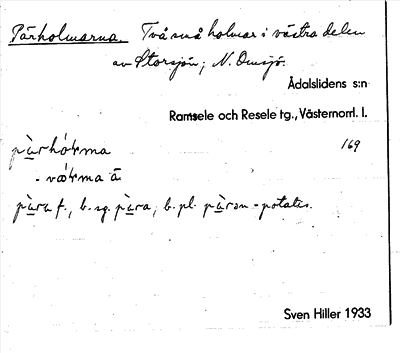 Pärholmarna. Två små holmar i västra delen
av Storsjön; N. Omsjö.
Ådalslidens s:n
Ramsele och Resele tg., Västernorrl. l.
169
pàrhóɫma
- vǽɫma ā
pàra f., b. sg. pàra, b. pl. pàran = potatis.
Sven Hiller 1933